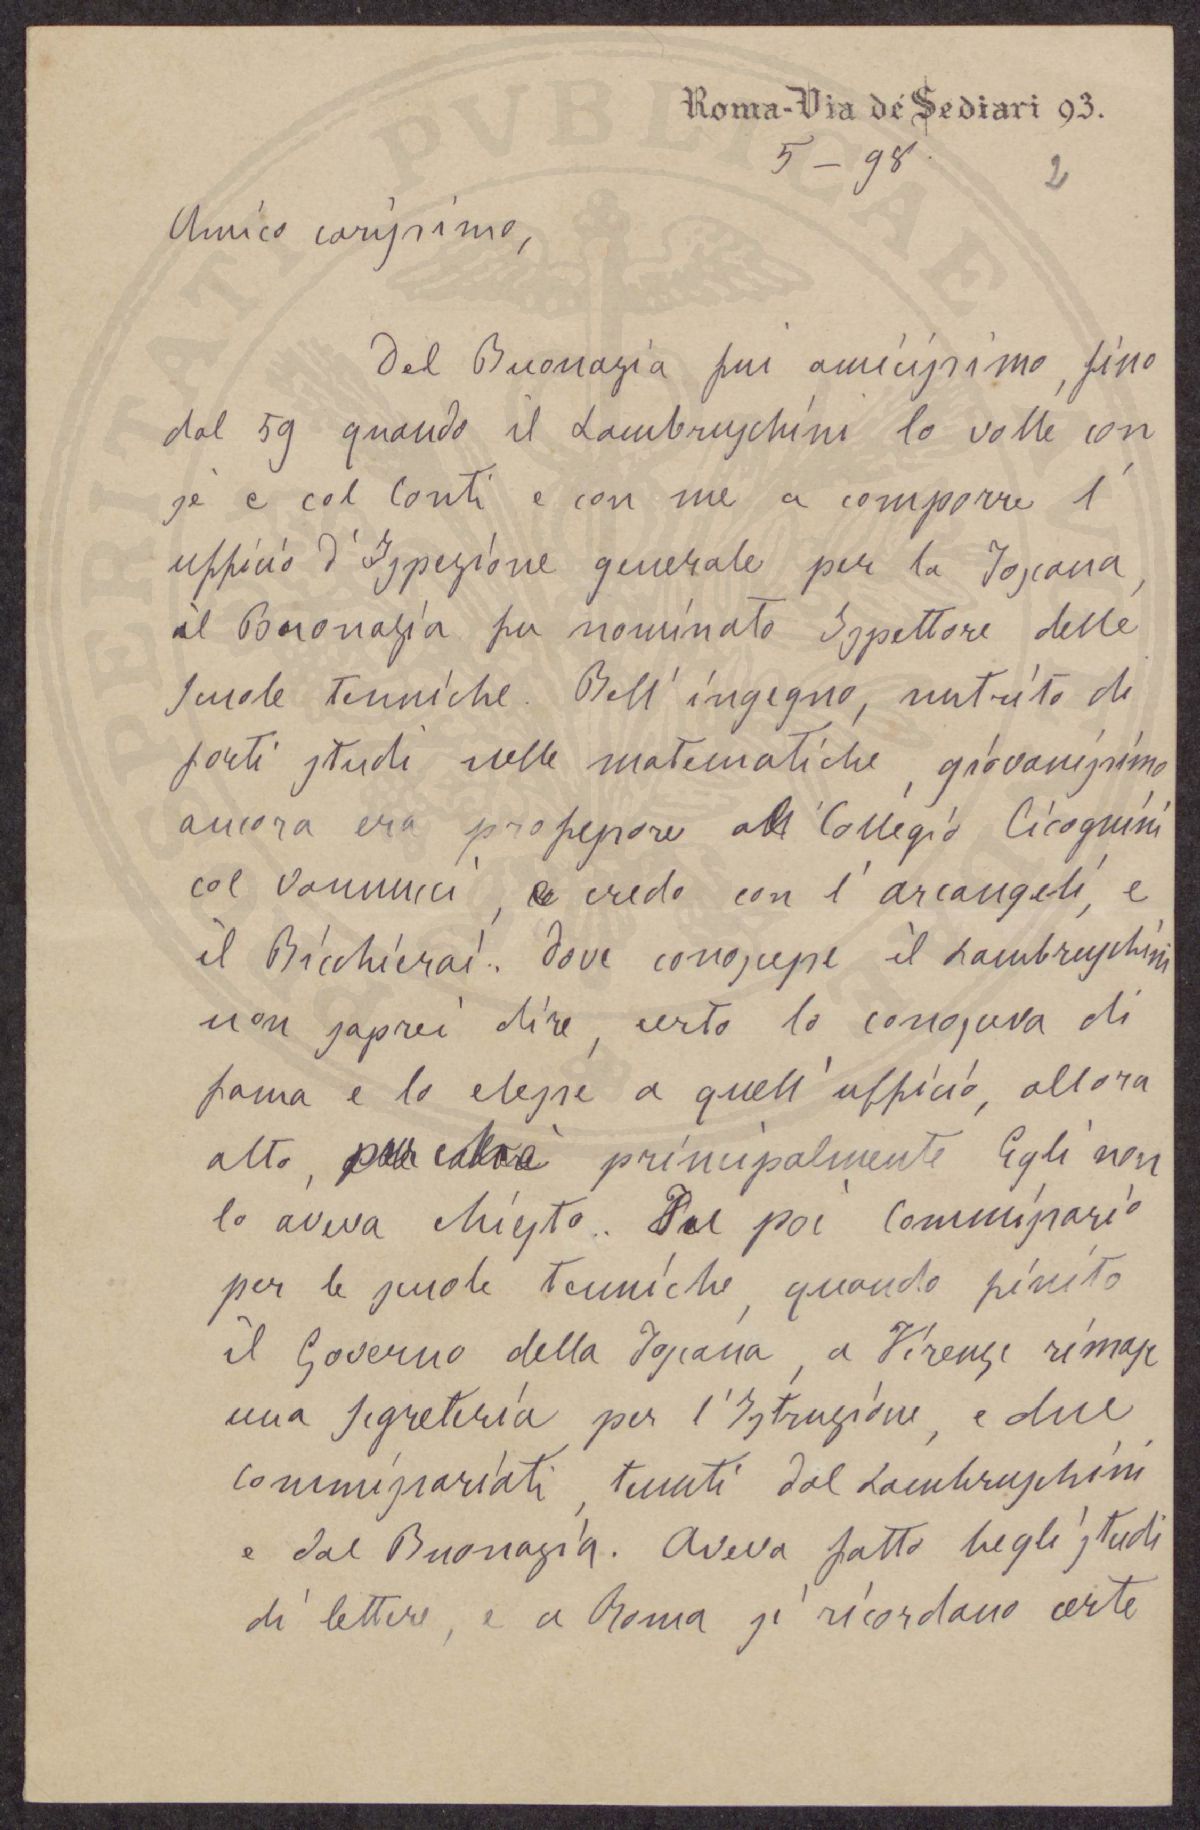 Roma-Via dé Sediari 93.
5 – 98.
2
Amico carissimo,
Del Buonazia fui amicissimo, fino
dal 59 quando il Lambruschini lo volle con
sè e col Conti e con me a comporre l'
ufficio d'Ispezione generale per la Toscana,
il Buonazia fu nominato Ispettore delle
scuole tecniche. Bell'ingegno, nutrito di
forti studi nelle matematiche, giovanissimo
ancora era professore all'Collegio Cicognini
col Vannucci, e credo con l'arcangeli, e
il Bicchierai.. Dove conoscesse il Lambruschini
non saprei dire, certo lo conosceva di
fama e lo elesse a quell'ufficio, allora
alto, principalmente Egli non
lo aveva chiesto.. Fu poi Commissario
per le scuole tecniche, quando finito
il Governo della Toscana, a Firenze rimase
una segreteria per l'Istruzione, e due
commissariati, tenuti dal Lambruschini
e dal Buonazia. Aveva fatto begli studi
di lettere, e a Roma si ricordano certe
PERITATI PVBLICAE